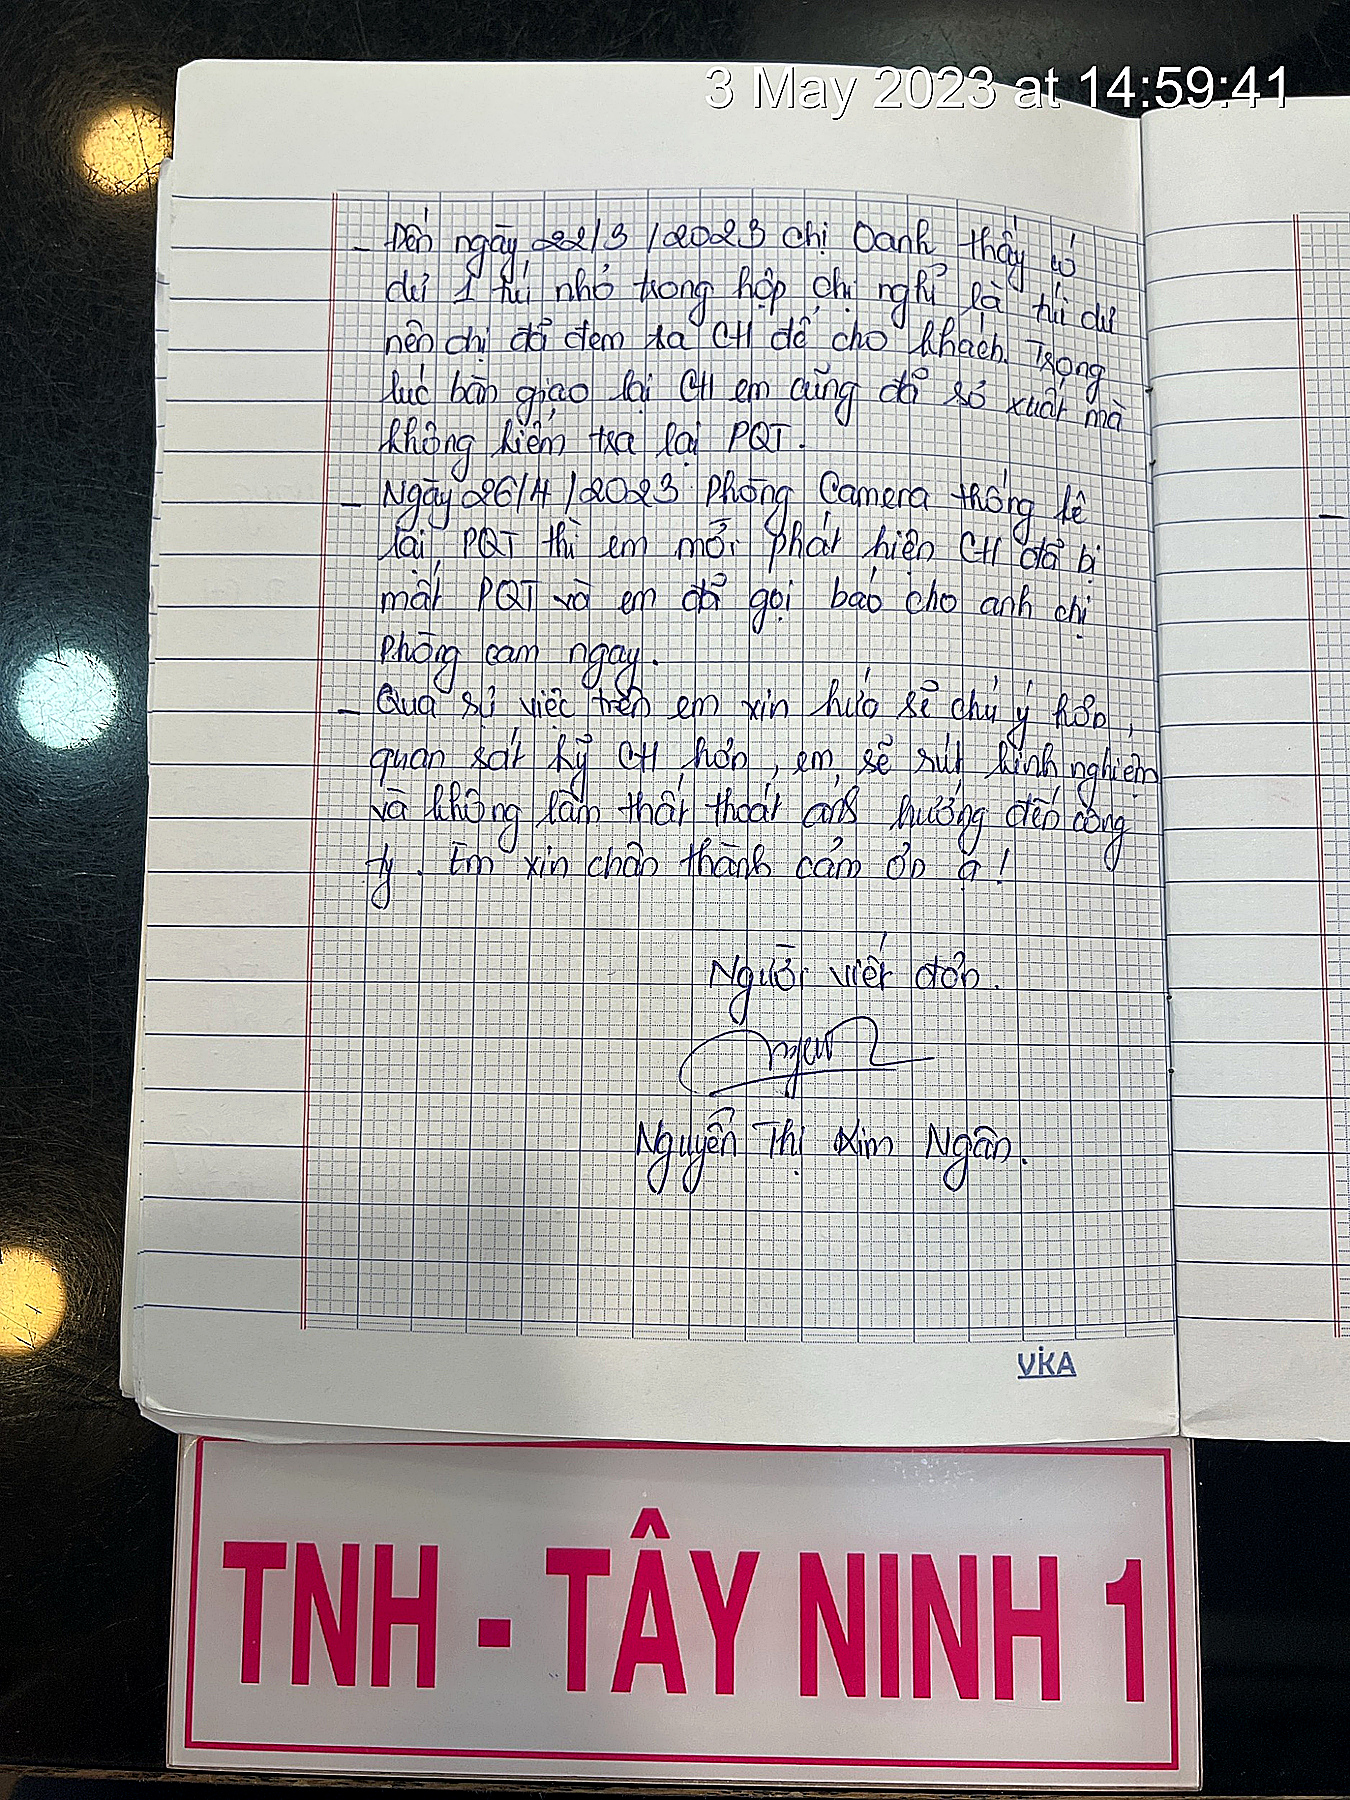 3 May 2023 at 14:59:41
- Đến ngày 22/3/2023 chị Oanh thấy có
dư 1 túi nhỏ trong hộp chị nghĩ là túi dư
nên chị đã đem ra CH để cho khách. Trong
lúc bàn giao lại CH em cũng đã sơ xuất mà
không kiểm tra lại PQT.
- Ngày 26/4/2023 phòng Camera thống kê
lại PQT thì em mới phát hiện CH đã bị
mất PQT và em đã gọi báo cho anh chị
phòng cam ngay.
- Qua sự việc trên em xin hứa sẽ chú ý hơn,
quan sát kỹ CH hơn, em sẽ rút kinh nghiệm
và không làm thất thoát ảnh hưởng đến công
ty. Em xin chân thành cảm ơn ạ!
Người viết đơn.
Nguyễn Thị Kim Ngân.
VIKA
TNH - TÂY NINH 1